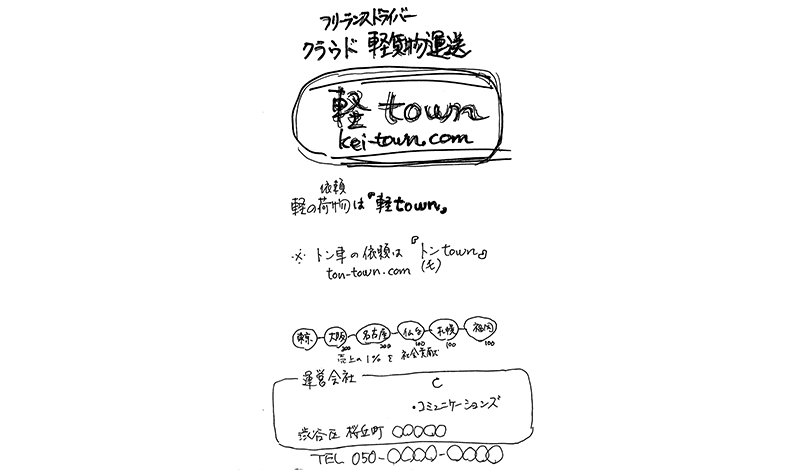 フリーランスドライバー
クラウド 軽貨物運送
軽 town
kei-town.com
依頼
軽の荷物は『軽town』
※ トン車の依頼は『トンtown』
ton-town.com (も)
東京 大阪 名古屋 仙台 札幌 福岡
200 200 100 100 100
売上の1%を社会貢献
運営会社 C
・コミュニケーションズ
渋谷区 桜丘町 〇〇〇〇〇
TEL 050-〇〇〇〇-〇〇〇〇